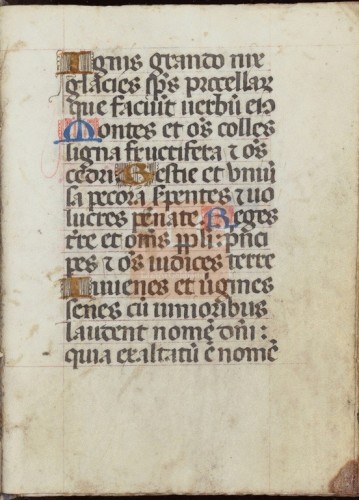 Ignis grando nix
glacies sps procellar
que faciūt verbū eiꝰ
Montes et oēs colles
ligna fructifera ⁊ oēs
cedri Bestie et vniū
sa pecora s̄pentes ⁊ vo
lucres pēnate. Reges
trre et om̄s ppli: pn̄ci
pes ⁊ oēs iudices terre
Iuuenes et v̄gines
senes cū iunioribus
laudent nomē dn̄i:
quia exaltatū ē nomē